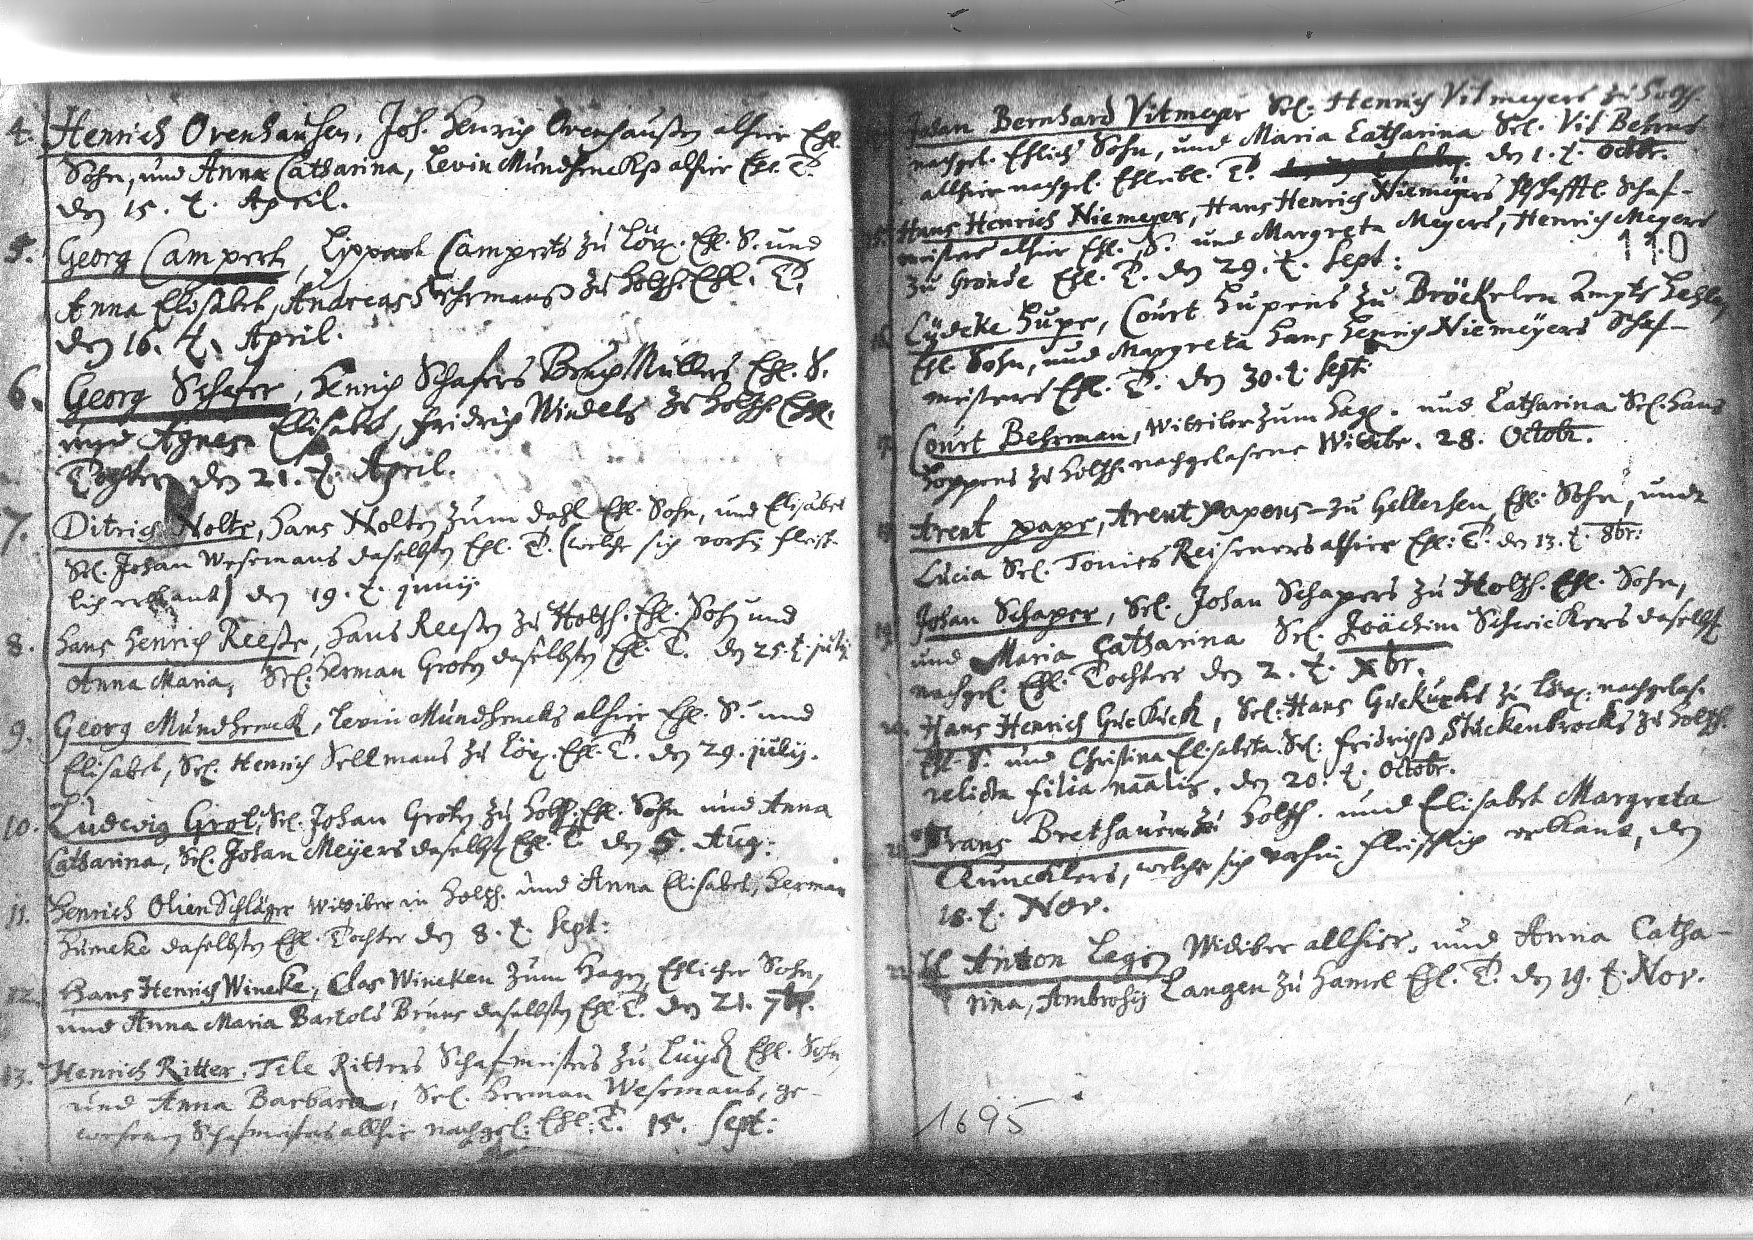 4. Henrich Ovenhausen, Joh. Henrich Ovenhausen alhier Ehl.
Sohn, und Anna Catharina, Levin Mundhencks alhier Ehl. T.
den 15. t. April.
5. Georg Campert, Lippert Camperts zu Löx. Ehl. S. und
Anna Elisabet, Andreas zu Holzh. Ehl. T.
den 16. t. April.
6. Georg Schefer, Henrich Schäfers Müllers Ehl. S.
und Agnesa Elisabet, Fridrich Windels zu Holzh. Ehl.
Tochter den 21. t. April.
7. Ditrich Nolte, Hans Nolten zum Dahl Ehl. Sohn, und Elisabet
Sel. Johan Wesemans daselbsten Ehl. T. (welche sich vorhin fleisch-
lich erkant) den 19. t. junij.
8. Hans Henrich Reese, Hans Reesen zu Holtzh. Ehl. Sohn und
Anna Maria, Sel. Herman Groten daselbsten Ehl. T. den 25. t. julij
9. Georg Mundhenck, Levin Mundhencks alhier Ehl. S. und
Elisabet, Sel. Henrich Sellmans zu Löx. Ehl. T. den 29. julij.
10. Ludewig Grot, Sel. Johan Groten zu Holzh. Ehl. Sohn und Anna
Catharina, Sel. Johan Meyers daselbst Ehl. T. den 5. Aug:
11. Henrich Olien Schläger Wittiber in Holzh. und Anna Elisabet, Herman
Humeke daselbsten Ehl. Tochter den 8. t. Sept:
12. Hans Henrich Wineke, Clas Wineken zum Hagen Ehlicher Sohn,
und Anna Maria Bartols Bruns daselbsten Ehl. T. den 21. 7br.
13. Henrich Ritter, Tele Ritters Schafmeisters zu Ehl. Sohn
und Anna Barbara, Sel. Herman Wesemans, ge-
wesenen Schafmeisters allhie nachgel: Ehl: T. 15. Sept:
Johan Bernhard Vitmeyer Sel. Henrich Vitmeyers zu Holzh.
nachgel. Ehlich Sohn, und Maria Catharina Sel. Vit Behrns
allhier nachgel. Ehleibl. T. den 1. t. Octbr.
Hans Henrich Niemeyer, Hans Henrich Niemeyers Schaf-
meister alhier Ehl. S. und Margreta Meyers, Henrich Meyers
zu Gronde Ehl. T. den 29. t. Sept:
110
Lydeke Hupe, Court Hupens zu Bröckelen Ampts Hehlen
Ehl. Sohn, und Margreta Hans Henrich Niemeyers Schaf-
meisters Ehl. T. den 30. t. Sept:
Court Behrman, Wittiber zum Hag. und Catharina Sel. Hans
Hoppens zu Holzh. nachgelasene Witwe. 28. Octobr.
Arent pape, Arent Papens zu Gellersen Ehl: Sohn, undt
Lucia Sel. Tonies Reiseners alhier Ehl: T. den 13. t. 8br:
19. Johan Schaper, Sel. Johan Schapers zu Holzh. Ehl. Sohn,
und Maria Catharina Sel. Joachim Schrickers daselbst
nachgel. Ehl. Tochter den 2. t. Xbr.
Hans Henrich Guckuck, Sel: Hans Guckucks zu Löx. nachgelas.
Ehl. S. und Christina Elisabeta Sel: Fridrichs Stuckenbrocks zu Holzh.
relicta filia naalis. den 20. t. Octobr.
Frans Brethauer zu Holzh. und Elisabet Margreta
welche sich vorhin fleischlich erkant, den
18. t. Nov.
22. Anton Legen Wittiber allhier, und Anna Catha-
rina, Ambrosij Langen zu Hamel Ehl. T. den 19. t. Nov.
1695